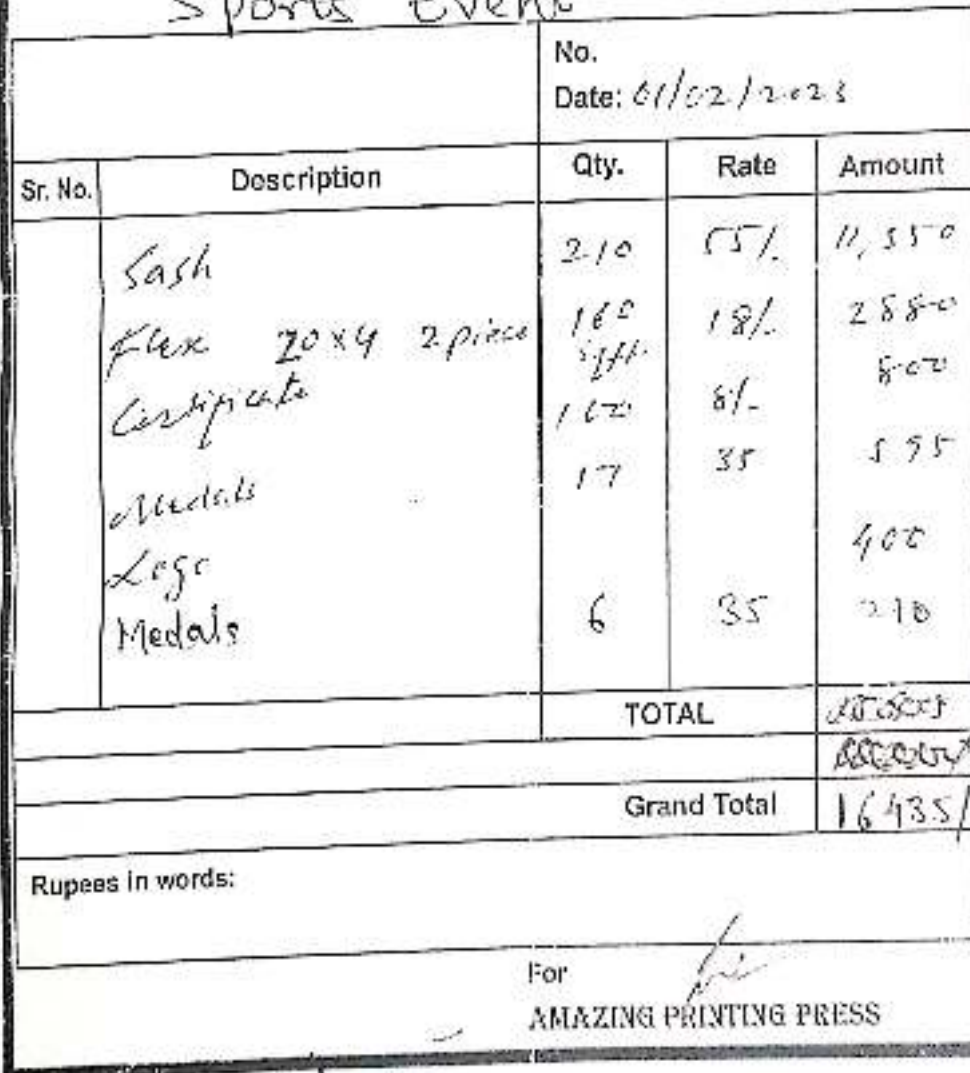 Sports Event
No.
Date: 01/02/2023
Sr. No. Description Qty. Rate Amount
Sash 210 55/. 11,550
Flex 20x4 2 piece 160 18/. 2880
sqft.
Certificate 100 8/- 800
Medals 17 35 595
Logo 400
Medals 6 35 210
TOTAL
Grand Total 16435/
Rupees in words:
For
AMAZING PRINTING PRESS